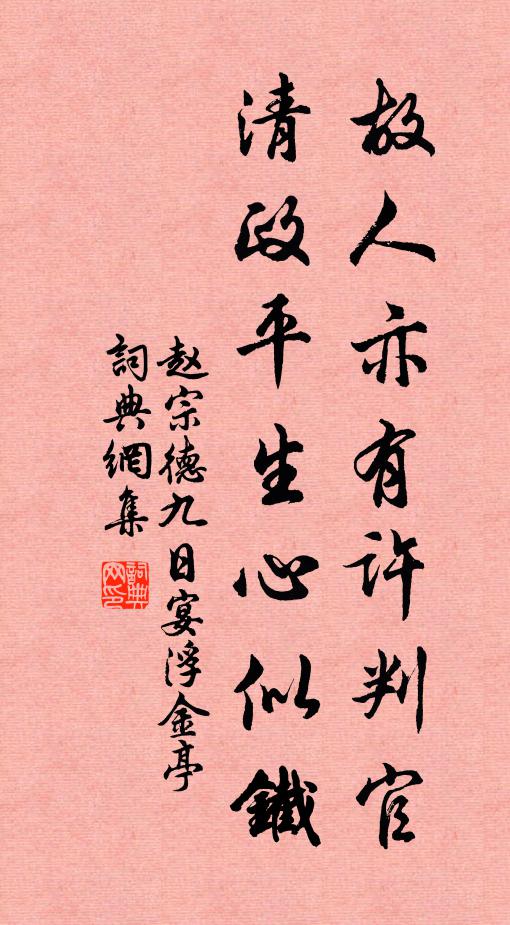 故人亦有许判官
清政平生心似鐵
赵宗德九日宴浮金亭
詞典網集
詞典
网印